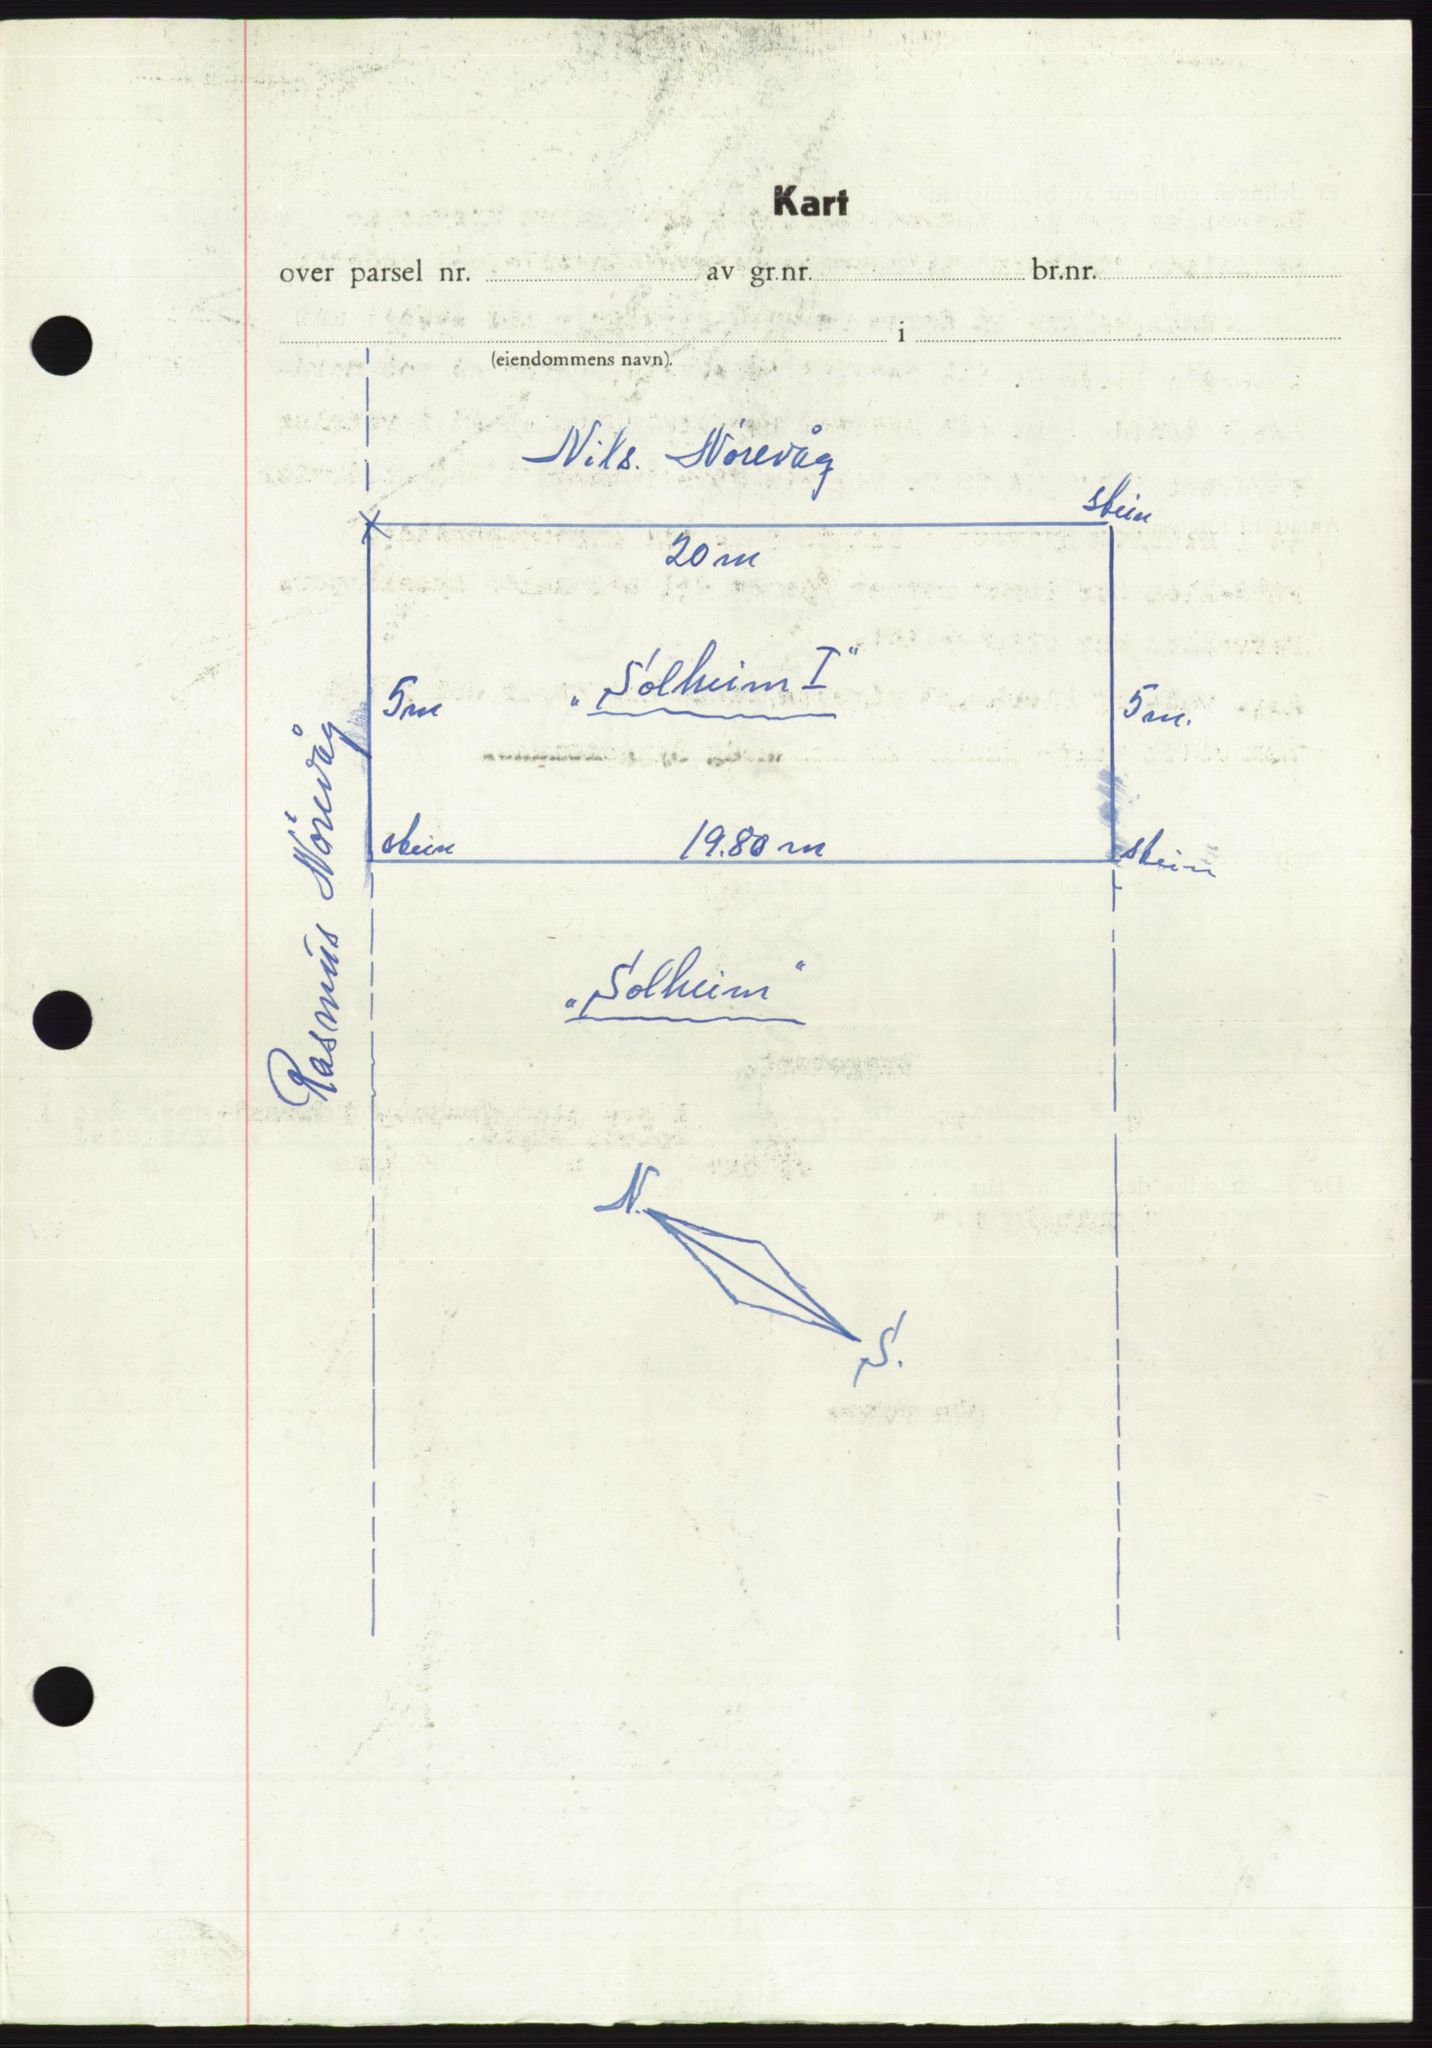 Kart
over parsel nr. av gr.nr. br.nr.
i
(eiendommens navn).
Nils. Nörevåg
stein
20 m
"Solheim I"
5m
5m.
Rasmus Nörevåg
stein
19.80 m
stein
"Solheim"
N.
S.